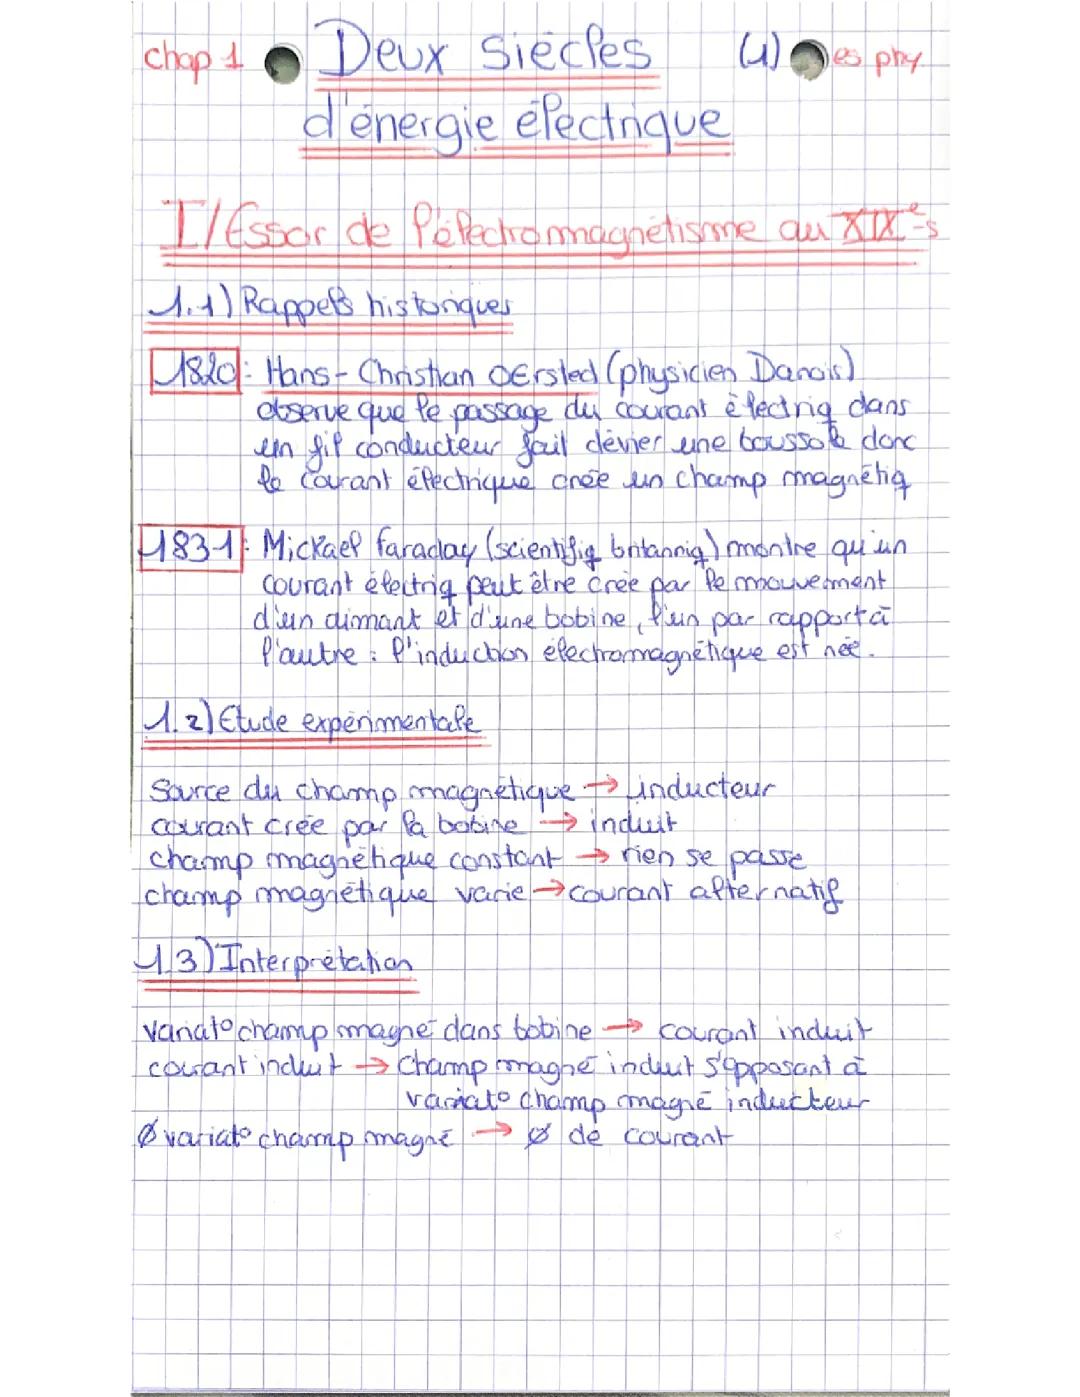 chap 1 Deux siècles (1) es phy
d'énergie électrique
I/Essor de l'électromagnétisme au XIXe s
1.1) Rappels historiques
1820: Hans-Christian OErsted (physicien Danois)
observe que le passage du courant électriq dans
un fil conducteur fait dévier une boussole donc
le courant électrique crée un champ magnétiq
1831: Mickael faraday (scientifiq britanniq) montre qu'un
courant électriq peut être crée par le mouvement
d'un aimant et d'une bobine, l'un par rapport à
l'autre : l'induction électromagnétique est née.
1.2) Etude expérimentale
Source du champ magnétique → inducteur
courant crée par la bobine → induit
champ magnétique constant → rien se passe
champ magnétique varie → courant alternatif
1.3) Interprétation
variat° champ magné dans bobine → courant induit
courant induit → Champ magné induit s'opposant à
variat° champ magné inducteur
Ø variat° champ magné → Ø de courant